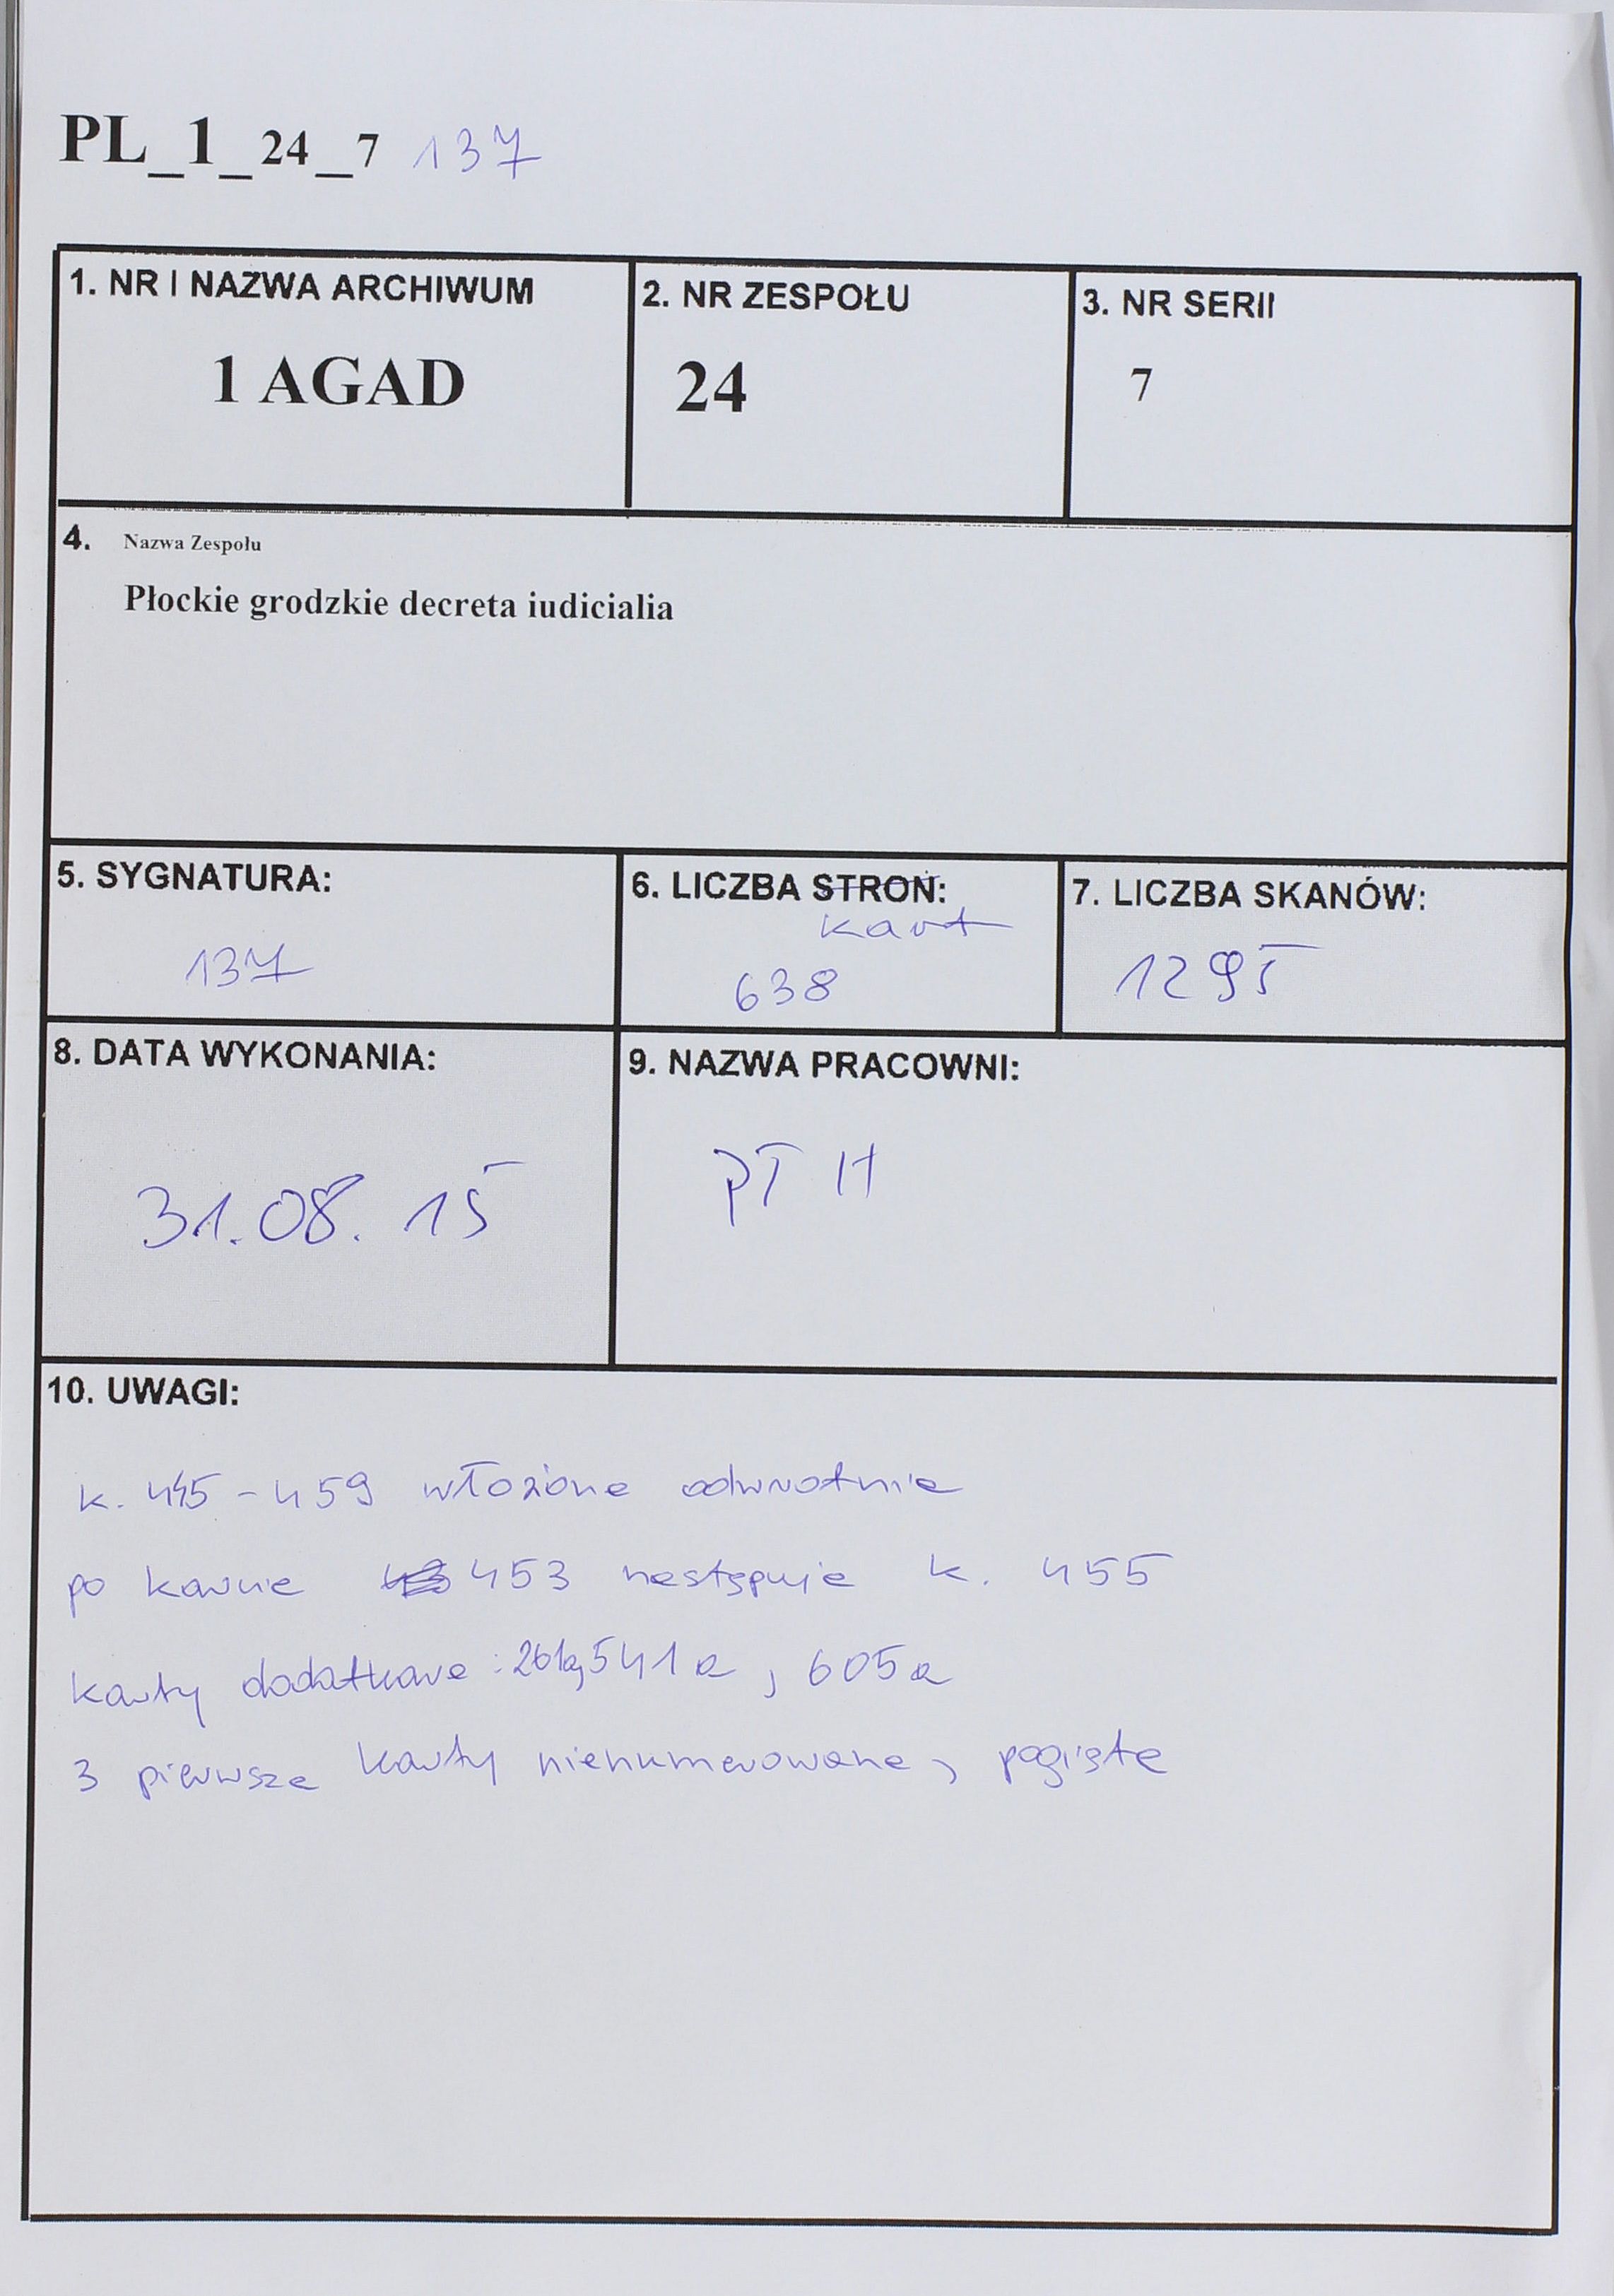 PL_1_24_7 137
1. NR I NAZWA ARCHIWUM
1 AGAD
2. NR ZESPOŁU
24
3. NR SERII
7
4. Nazwa Zespołu
Płockie grodzkie decreta iudicialia
5. SYGNATURA:
137
6. LICZBA STRON:
kart
638
7. LICZBA SKANÓW:
1295
8. DATA WYKONANIA:
31.08.15
9. NAZWA PRACOWNI:
PTH
10. UWAGI:
k. 445-459 włożone odwrotnie
po karcie 453 następuje k. 455
karty dodatkowe: 261a, 541a, 605a
3 pierwsze karty nienumerowane, pogięte